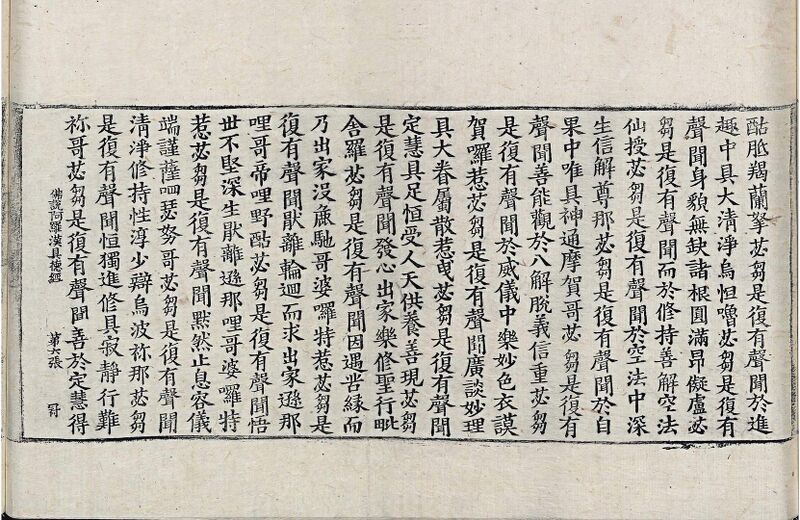 酤胝羯蘭拏苾芻是復有聲聞於進
趣中具大清淨烏怛嚕苾芻是復有
聲聞身貌無缺諸根圓滿昂儗盧苾
芻是復有聲聞而於修持善解空法
仙授苾芻是復有聲聞於空法中深
生信解尊那苾芻是復有聲聞於自
果中唯具神通摩賀哥苾芻是復有
聲聞善能觀於八解脫義信重苾芻
是復有聲聞於威儀中樂妙色衣謨
賀囉惹苾芻是復有聲聞廣談妙理
具大眷屬散惹曳苾芻是復有聲聞
定慧具足恒受人天供養善現苾芻
是復有聲聞發心出家樂修聖行毗
舍羅苾芻是復有聲聞因遇甞緣而
乃出家沒䴡馳哥婆囉特惹苾芻是
復有聲聞厭離輪迴而求出家遜那
哩哥帝哩野酤苾芻是復有聲聞悟
世不堅深生厭離遜那哩哥婆囉特
惹苾芻是復有聲聞默然止息容儀
端謹薩呬瑟努哥苾芻是復有聲聞
清淨修持性淳少辯烏波祢那苾芻
是復有聲聞恒獨進修具寂靜行難
祢哥苾芻是復有聲聞善於定慧得
佛說阿羅漢具德經 第六張